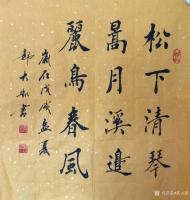 松下清琴
蒿月溪邊
麗鳥春風
歲在戊戌孟夏
郭大凱書